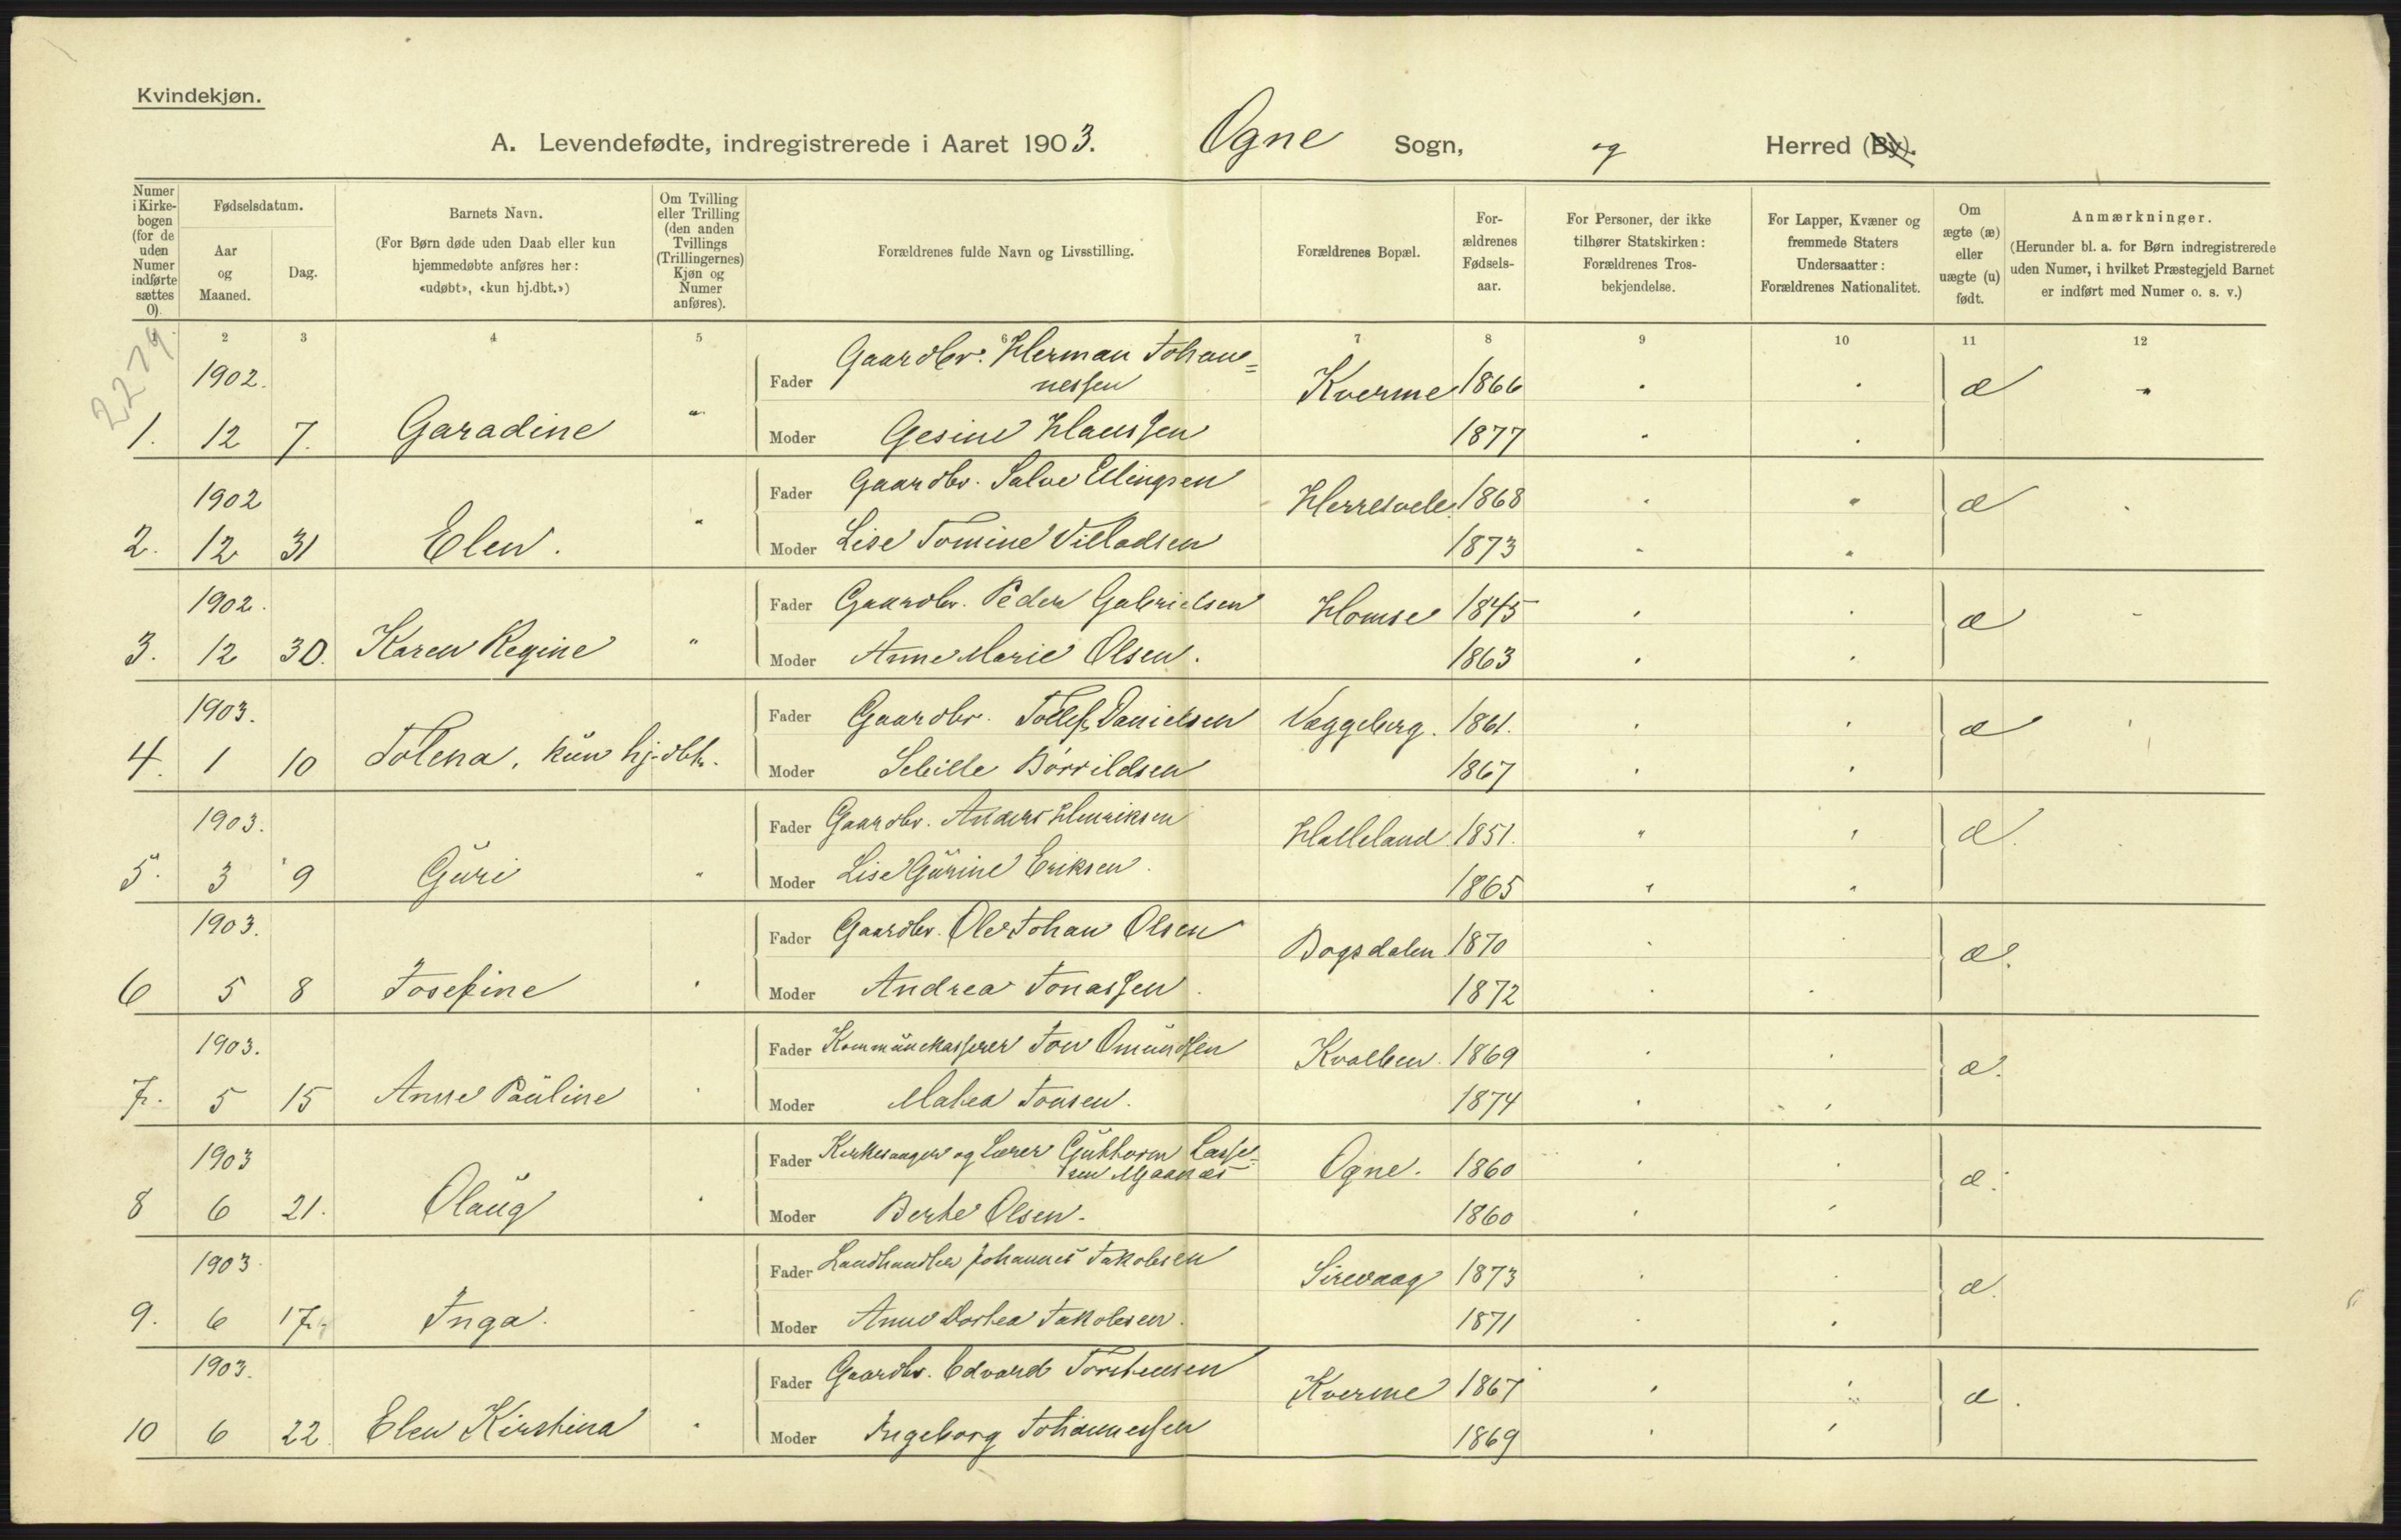 Kvindekjøn.
A. Levendefødte, indregistrerede i Aaret 1903. Ogne Sogn, og Herred (By).
Numer i Kirkebogen (for de uden Numer indførte sættes 0).
Fødselsdatum.
Aar og Maaned.
Dag.
Barnets Navn.
(For Børn døde uden Daab eller kun hjemmedøbte anføres her: «udøbt», «kun hj.dbt.»)
Om Tvilling eller Trilling (den anden Tvillings (Trillingernes) Kjøn og Numer anføres).
Forældrenes fulde Navn og Livsstilling.
Forældrenes Bopæl.
Forældrenes Fødselsaar.
For Personer, der ikke tilhører Statskirken: Forældrenes Trosbekjendelse.
For Lapper, Kvæner og fremmede Staters Undersaatter: Forældrenes Nationalitet.
Om ægte (æ) eller uægte (u) født.
Anmærkninger.
(Herunder bl. a. for Børn indregistrerede uden Numer, i hvilket Præstegjeld Barnet er indført med Numer o. s. v.)
2 3 4 5 6 7 8 9 10 11 12
2279
1902. Fader Gaardbr. Herman Johan=
nessen Kverme 1866 æ "
1. 12 7. Garadine " Moder Gesine Klaussen 1877
1902 Fader Gaardbr. Salve Ellingsen Herresvele 1868 æ
2. 12 31 Elen. " Moder Lise Tomine Villadsen 1873
1902. Fader Gaardbr. Peder Gabrielsen Homse 1845 æ
3. 12 30. Karen Regine " Moder Anne Marie Olsen. 1863
1903. Fader Gaardbr. Tollef Danielsen Væggeberg. 1861. æ
4. 1 10 Tolena, kun hj.dbt. Moder Sebille Børrildsen 1867
1903. Fader Gaardbr. Anders Henriksen Halleland 1851. æ.
5. 3 9 Guri " Moder Lise Gurine Eriksen. 1865
1903. Fader Gaardbr. Ole Johan Olsen Bogsdalen 1870 æ.
6 5 8 Josefine Moder Andrea Jonassen. 1872
1903. Fader Kommunekasserer Jon Omundsen Kvalben. 1869 æ.
7. 5 15 Anne Pauline Moder Malea Jonsen. 1874
1903 Fader Kirkesanger og Lærer Guttorm Lasse=
sen Maanæs Ogne. 1860 æ.
8 6 21. Olaug Moder Berte Olsen. 1860
1903 Fader Landhandler Johannes Jakobsen Sirevaag 1873 æ.
9. 6 17. Inga. Moder Anne Dortea Jakobsen. 1871
1903. Fader Gaardbr. Edvard Torstensen Kverme 1867 æ.
10 6 22 Elen Kirstina Moder Ingeborg Johannessen 1869